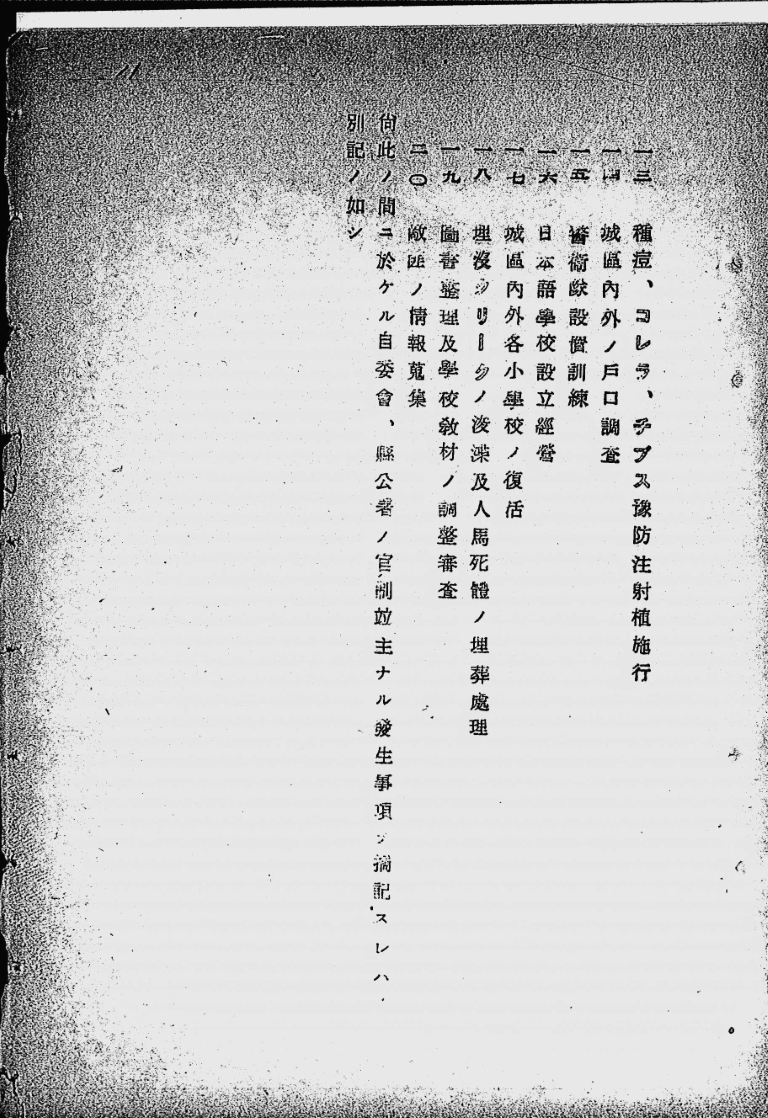 一三 種痘、コレラ、チブス豫防注射植施行
一四 城區內外ノ戶口調査
一五 警衞隊設置訓練
一六 日本語學校設立經營
一七 城區內外各小學校ノ復活
一八 埋沒クリークノ浚渫及人馬死體ノ埋葬處理
一九 圖書整理及學校敎材ノ調整審査
二〇 敵匪ノ情報蒐集
尙此ノ間ニ於ケル自委會、縣公署ノ官制竝主ナル發生事項ヲ摘記スレハ
別記ノ如シ